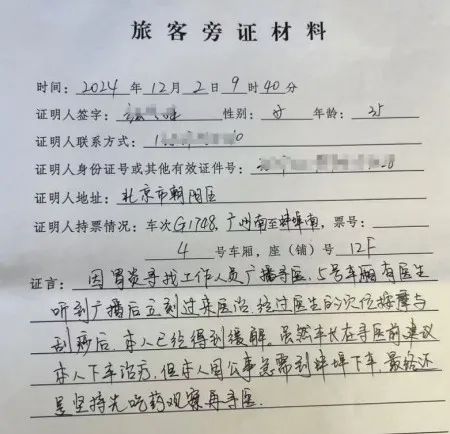 旅客旁证材料
时间：2024年12月2日9时40分
证明人签字：性别：女 年龄：35
证明人联系方式：
证明人身份证号或其他有效证件号：
证明人地址：北京市朝阳区
证明人持票情况：车次G1748，广州南至蚌埠南，票号：
4号车厢，座（铺）号12F
证言：因胃炎寻找工作人员广播寻医，5号车厢有医生
听到广播后立刻过来医治，经过医生的穴位按摩与
刮痧后，本人已经得到缓解。虽然车长在寻医前建议
本人下车治疗，但本人因公事急需到蚌埠下车，最终还
是坚持先吃药观察再寻医。